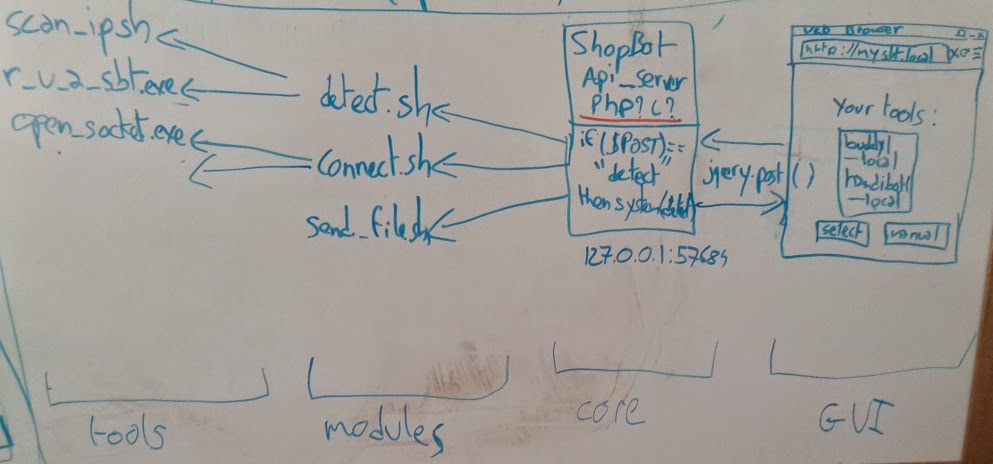 scan_ip.sh
r_u_2_sbt.exe
open_socket.exe
detect.sh
connect.sh
send_file.sh
ShopBot
Api_server
Php? C?
if ($POST)==
"detect"
then system(detect)
127.0.0.1:57684
jquery.post()
Web Browser
http://mysbt.local
Your tools:
buddy1
-local
handibot1
-local
select
manual
tools
modules
core
GUI